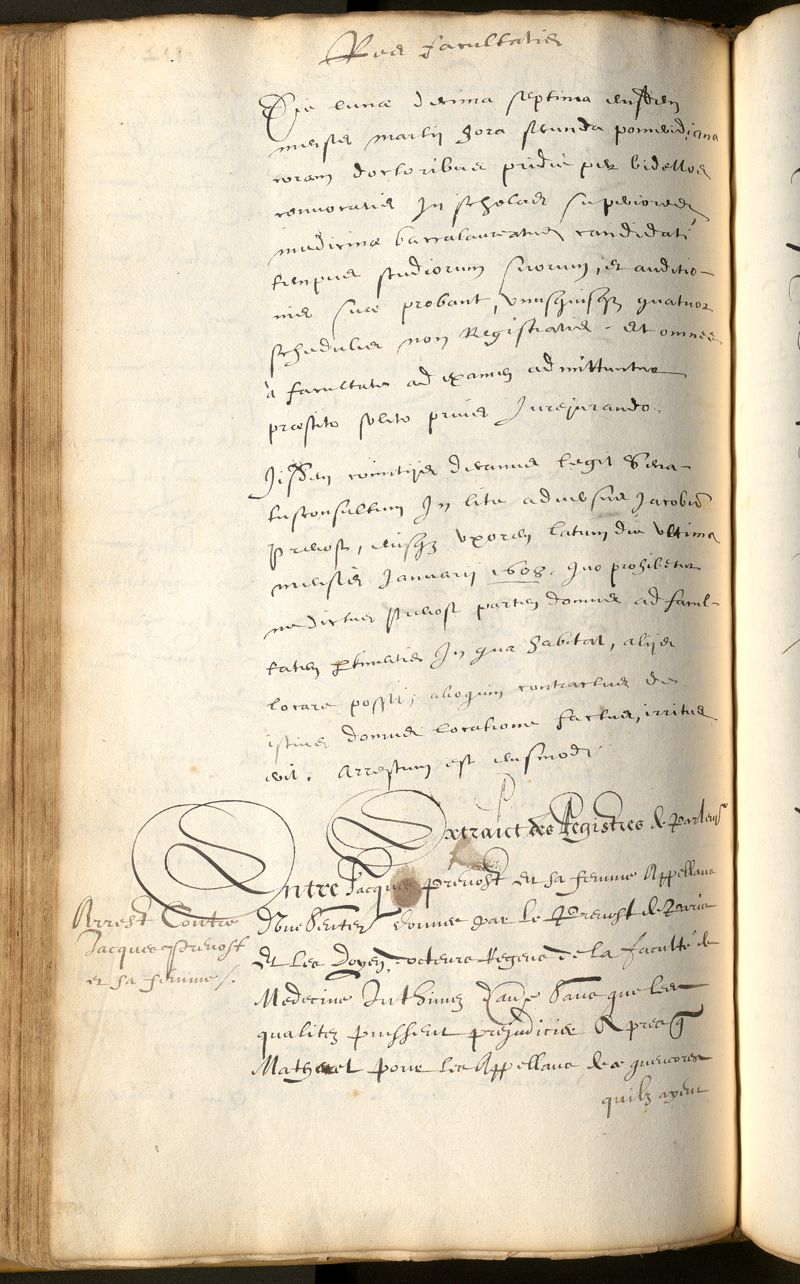 Res facultatis
Die lunæ decima septima eiusdem
mensis martij hora secunda pomeridiana
coram doctoribus pridie per bidellos
conuocatis In scholas superiores,
medicinæ baccalaureatus candidati
tempus studiorum suorum, et auditio-
nis suæ probant, vnusquisq3 quatuor
schedulis non Registratis. et omnes
à facultate ad examen admittuntur
præstito solito prius Jurejurando.
Jisdem comitijs decanus legit Sena-
tusconsultum In lite aduersus Jacobū
preuost, eiusq3 vxorem latum die vltima
mensis Januarij 1608. quo prohibetur
ne dictus preuost partem domus ad facul-
tatem ptinentis In qua habitat, alijs
locare possit; alioquin contractus de
istius domus locatione factus, irritus
erit. Arrestum est eiusmodi
Extraict des Registres de Parlemt
Entre Jacques preuost et sa femme Appellans
Dune Senten donnee par le Preuost de Paris
Et Les Doyen, docteurs Regens de la faculté de
Medecine Inthimez dautre Sans que les
qualitez puissent prejudicier Apres q
Matharel pour les Appellans
quilz ayent
Arrest Contre
Jacques Preuost
et sa femme /.